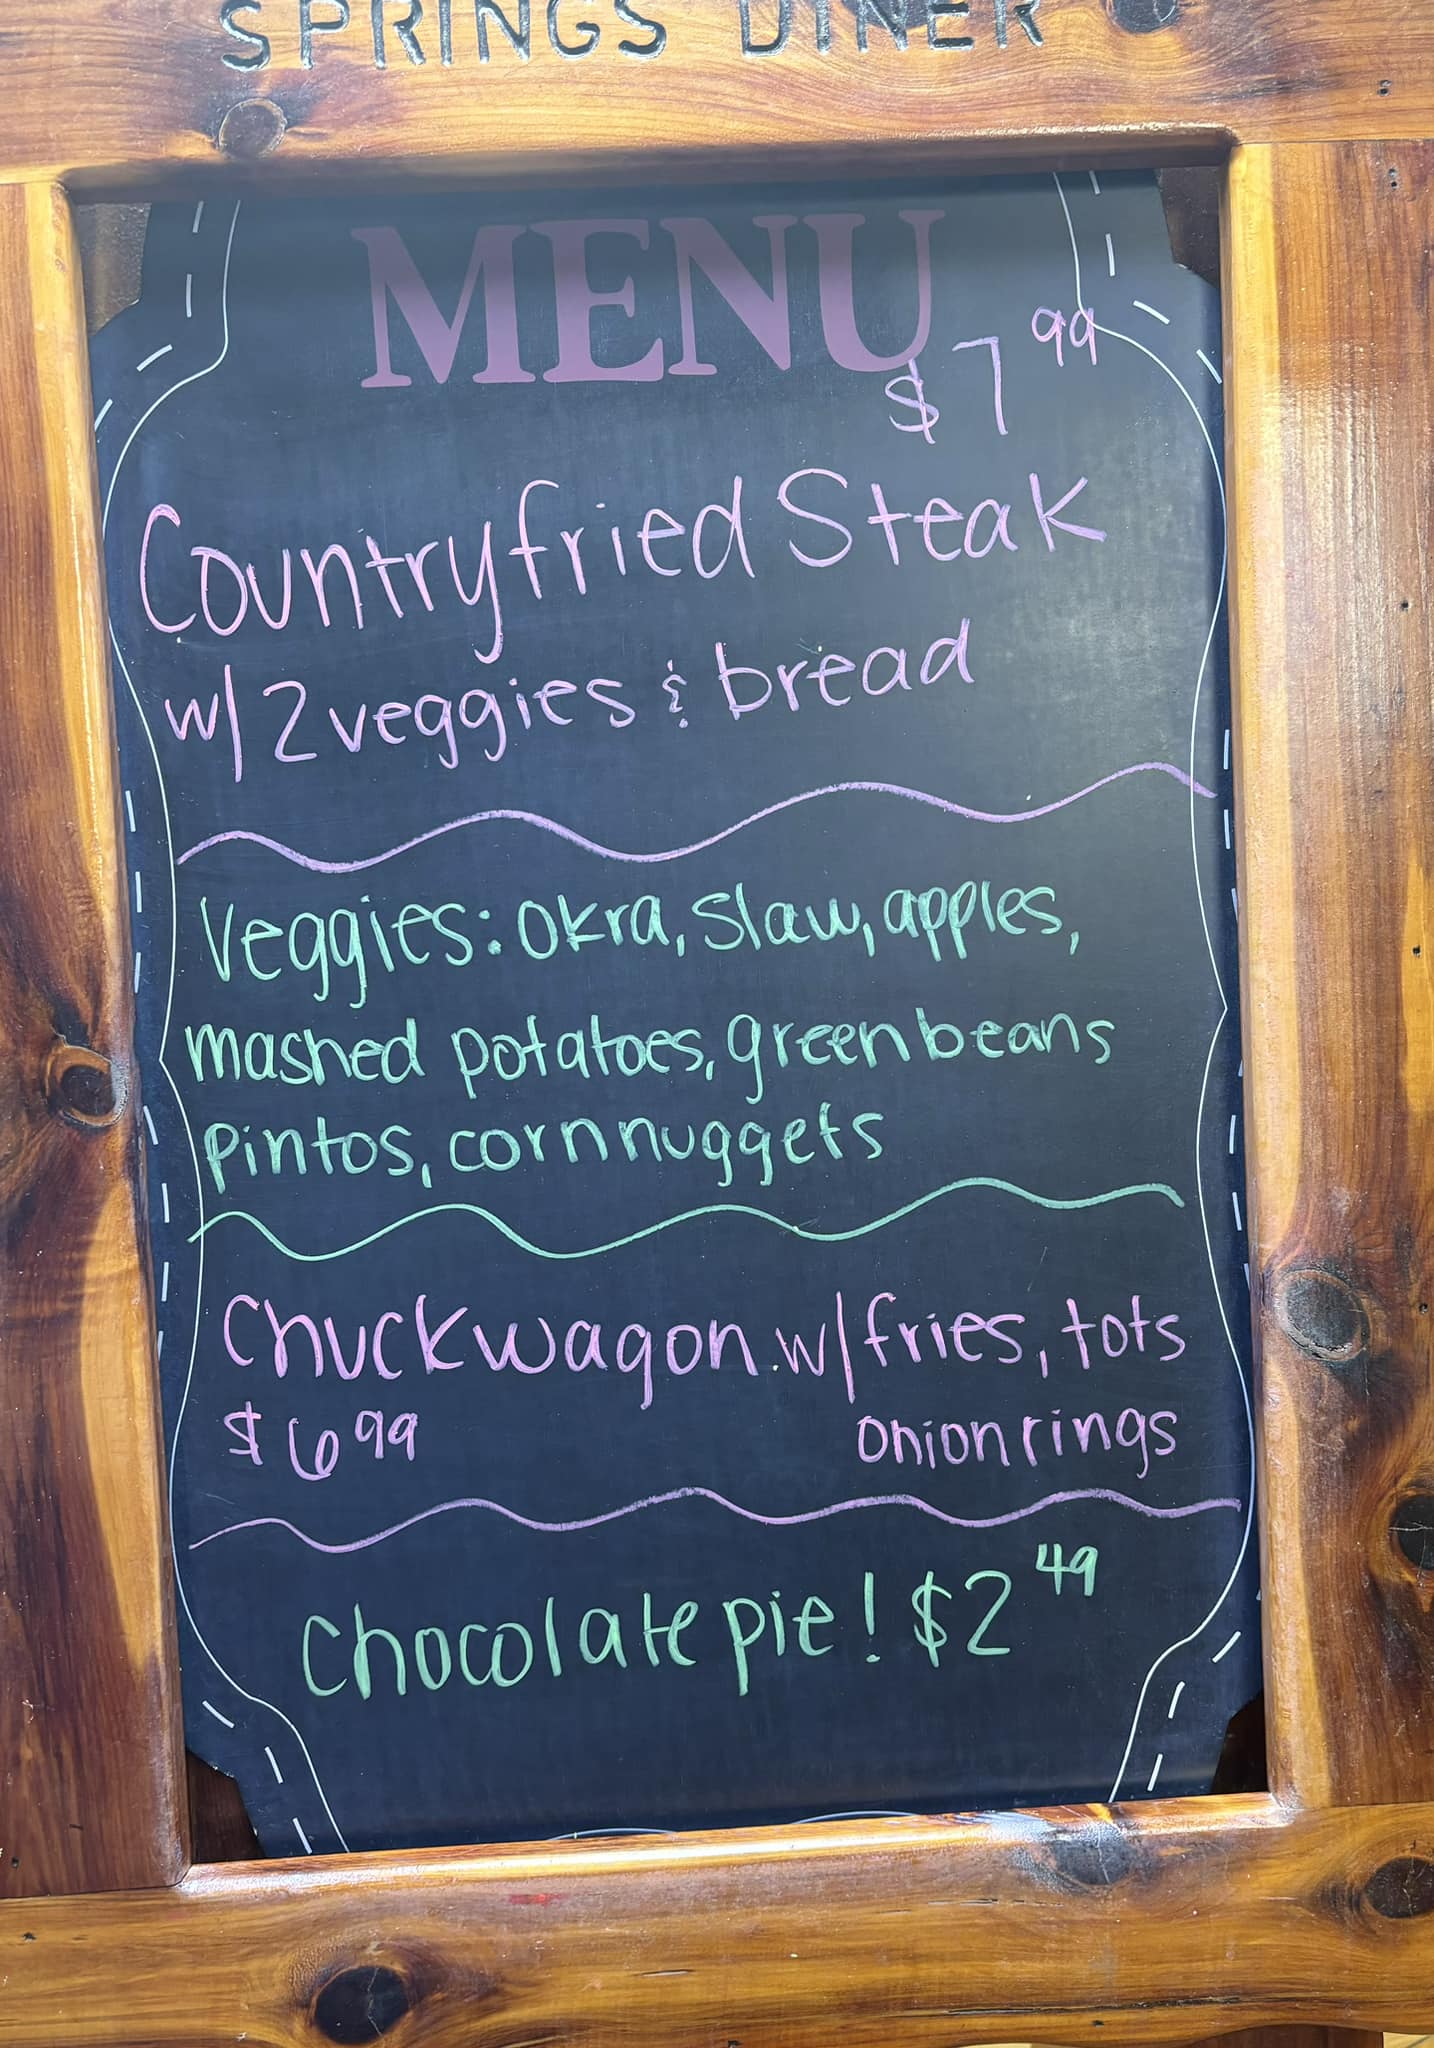 SPRINGS DINER
MENU
$7 99
Countryfried Steak
w/ 2 veggies & bread
Veggies: okra, slaw, apples,
mashed potatoes, green beans
pintos, corn nuggets
Chuckwagon w/ fries, tots
$6 99 onion rings
Chocolate pie! $2 49